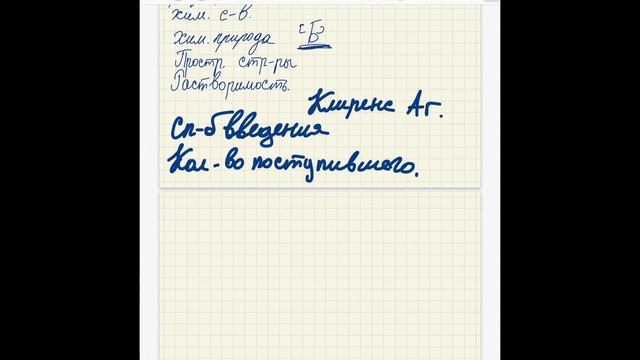 хим. с-в.
хим. природа [Б]
Простр. стр-ры
Растворимость.
Клиренс Аг.
Сп-б введения
Кол-во поступившего.